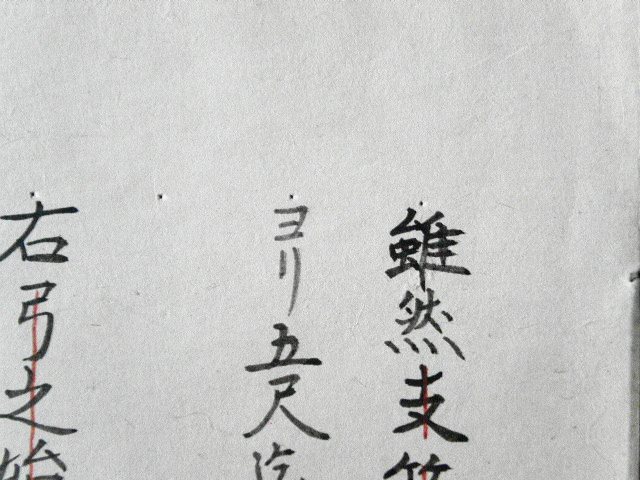 雖然支
ヨリ五尺迄
右弓之始